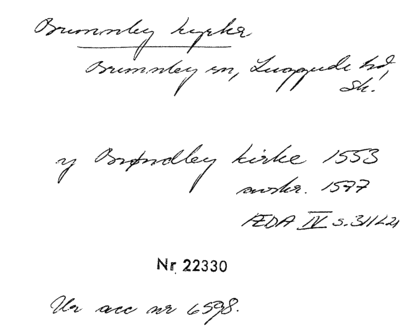 Brunnby kyrka
Brunnby sn, Luggude hd,
Sk.
y Brøndbey kirke 1553
avskr. 1577
ÆDA IV s. 311 f. 21
Nr 22330
Ur acc nr 6598.